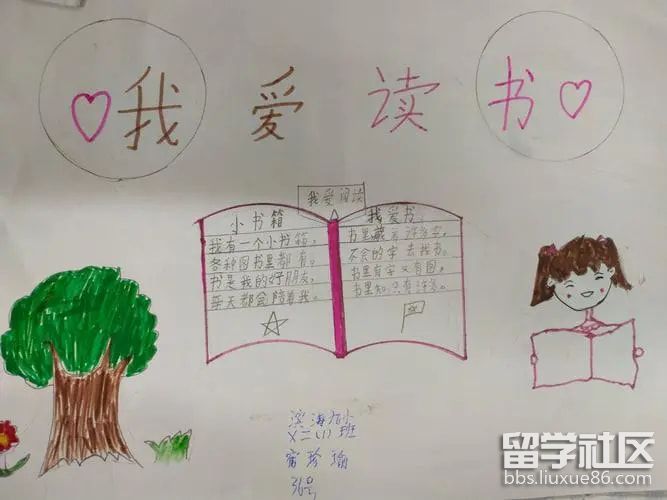 我爱读书
我爱阅读
小书箱
我有一个小书箱。
各种图书里都有。
书是我的好朋友。
每天都会陪着我。
我爱书
书里藏着许多字，
不会的字去找书。
书里有字又有图。
书里知识有许多。
滨海九小
二(1)班
珍瑜
36号
留学社区
bbs.liuxue86.com